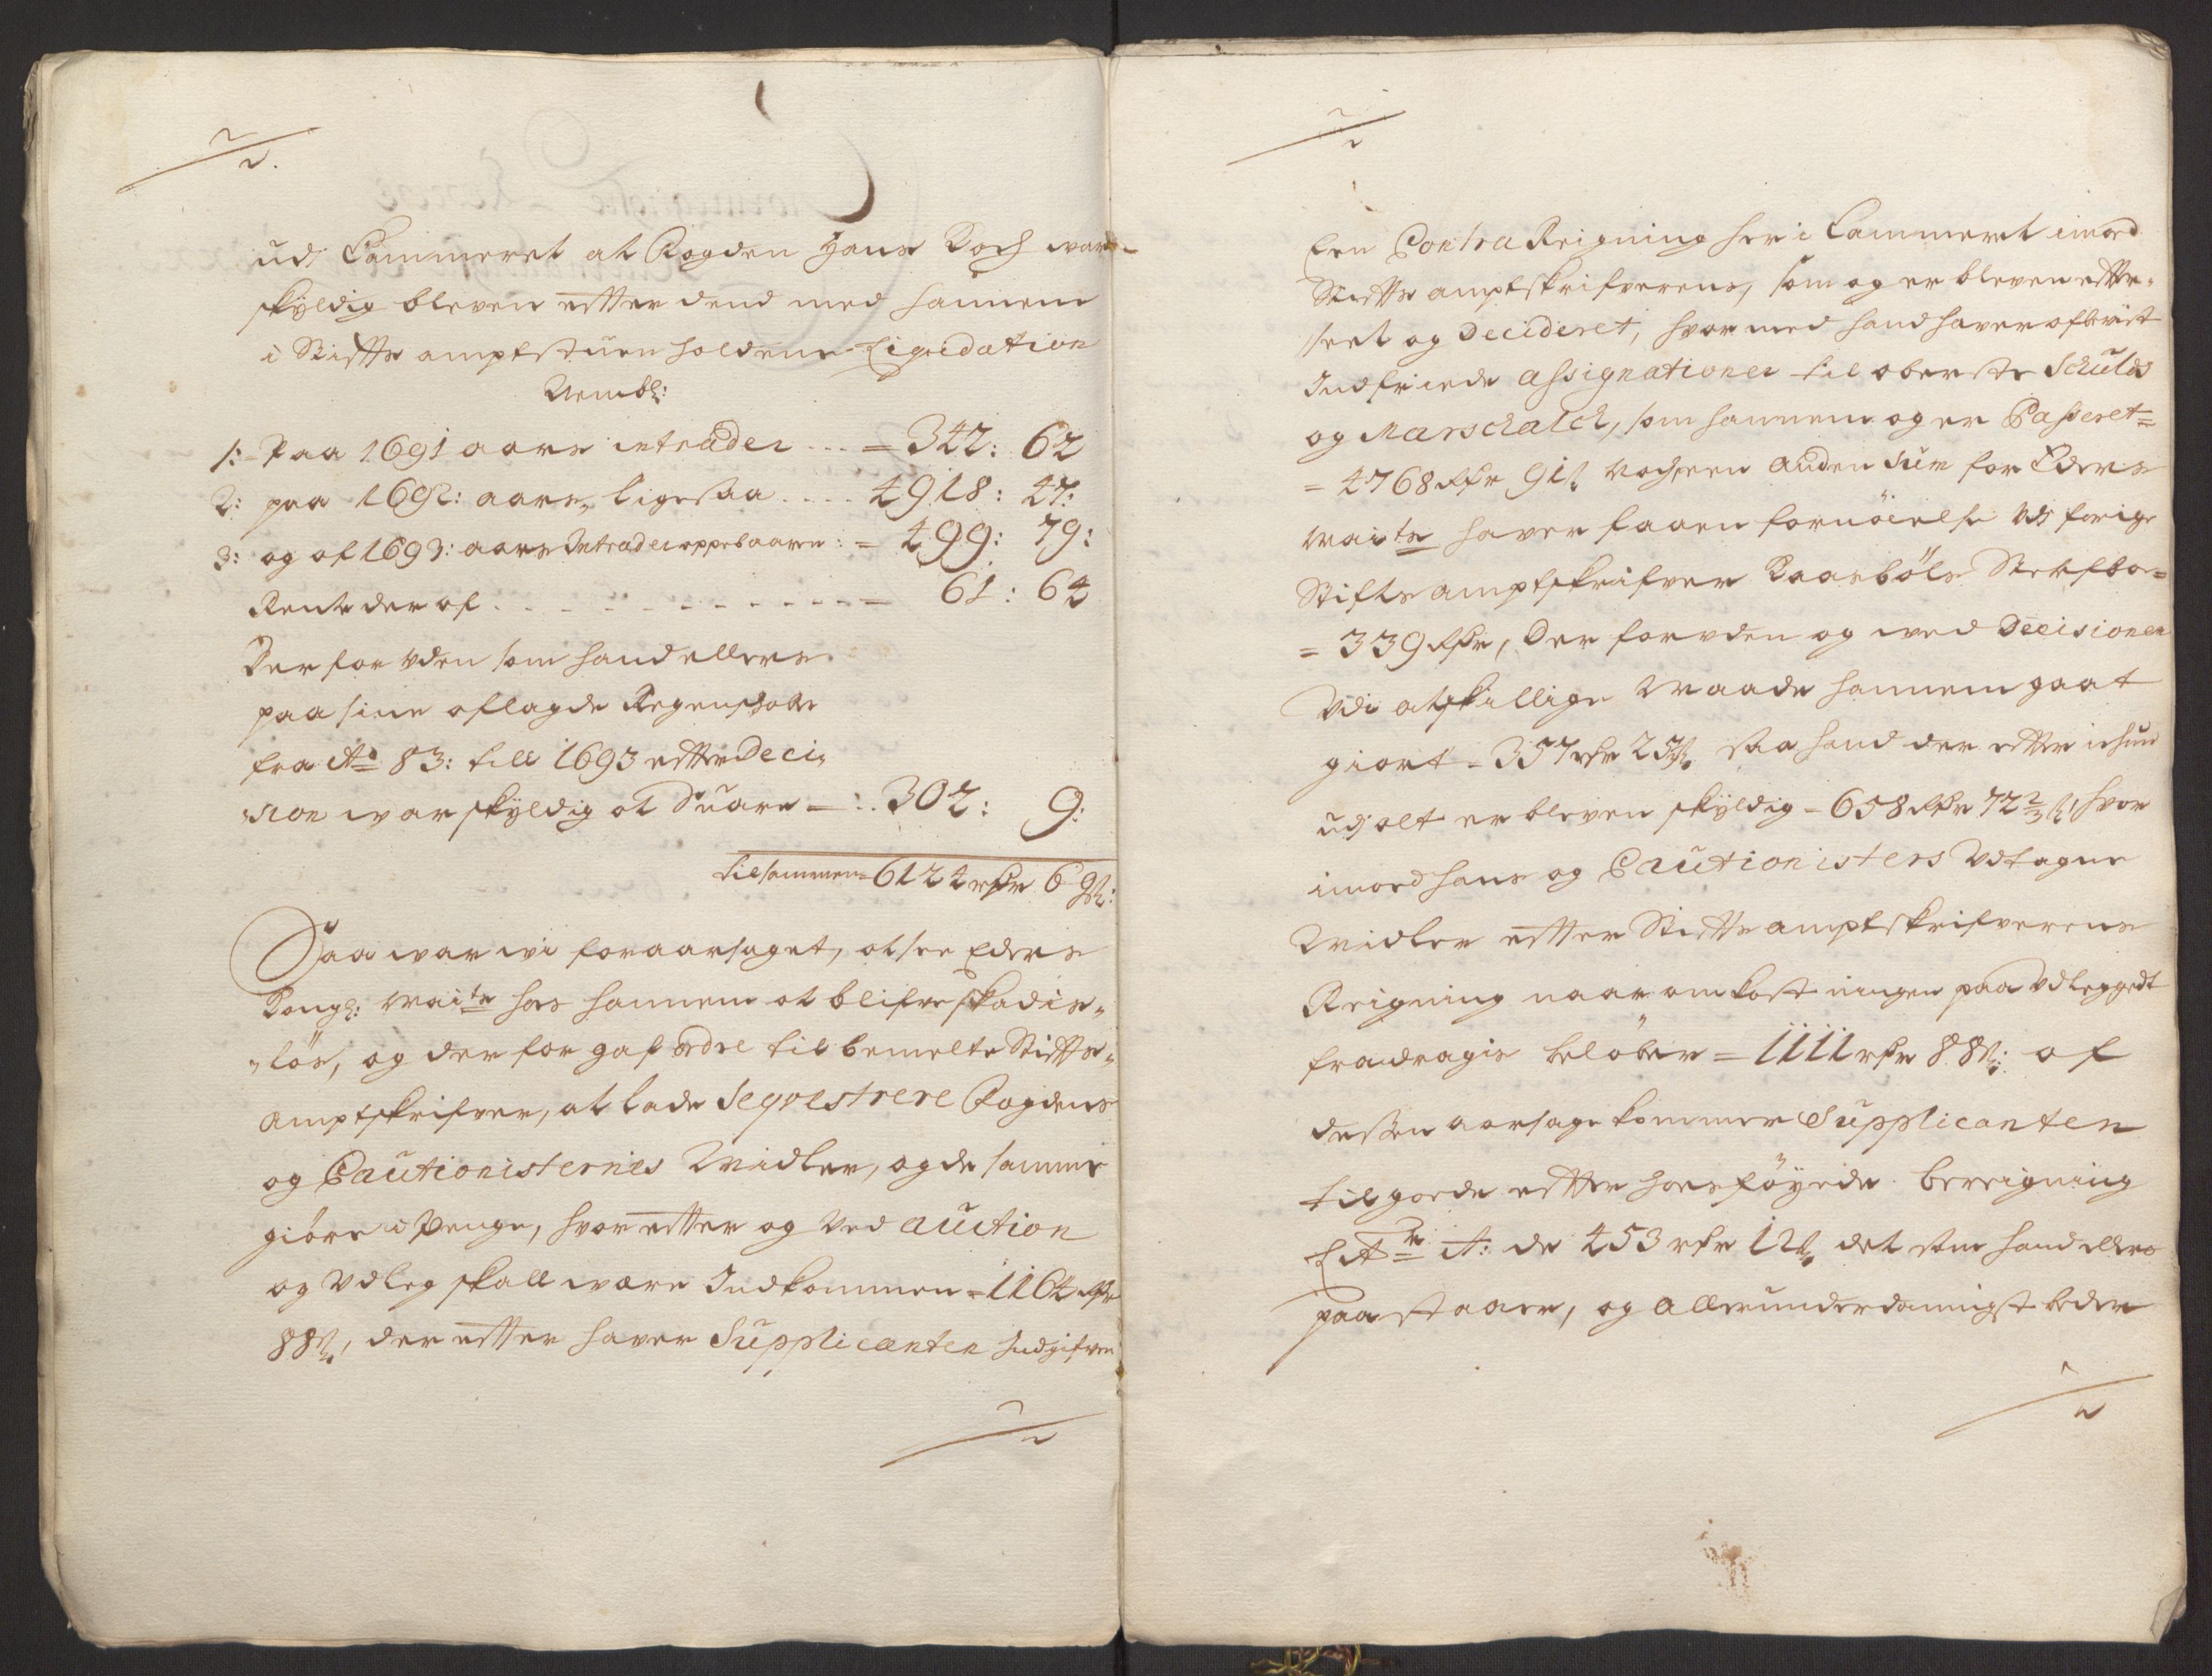 udj Cammeret at Fogden Hans Koch war
skÿldig bleven efter dend med hannem
i Stiftsamptstuen holdene Liqvidation
Nembl:
1: Paa 1691 aars intrader ... = 342: 62
2: paa 1692: aars ligesaa .... 4918: 47:
3: og af 1693: aars Intrader oppebaaren: = 499: 79:
Rente der af . . . . . = 61: 64
Der for uden som hand ellers
paa sine aflagde Regenschaber
fra Ao 83: till 1693 efter Deci-
sion war skÿldig at Suare - : . . 302: 9:
tilsammen = 6124 rdr 69 s:
Saa war wi foraarsaget, at see Eders
Kongl: Maits hos hannem at blifve skadis-
løs, og der for gaf ordre til bemelte Stifts-
amptskrifver, at lade Seqvestrere Fogdens
og Cautionisternes Midler, og de samme
giøre i Penge, hvor efter og Ved auction
og Udleg skall være Indkommen = 1164 rdr
88 s, der efter haver Supplicanten Indgifven
Een Contra Reigning her i Cammeret imod
Stiftsamptskrifverens, som og er bleven efter-
seet og Decideret, hvor med hand haver afbevist
Indfriede assignationer til oberste Schults
og Marschalch, som hannem og er Passeret =
= 4768 rdr 91 s noch een anden Sum for Eders
Maits haver faaen fornøielse udj forige
Stiftsamptskrifver Kaasbøls Sterfboe =
= 339 rdr, Der foruden og wed Decisionen
Udi atskillige Maade hannem gaat
giort = 357 rdr 25 s saa hand der efter ichun
udj alt er bleven skÿldig = 658 rdr 72 2/3 s, hvor
imod hans og Cautionisters Udtagne
Midler efter Stiftsamptskrifverens
Reigning naar omkostningen paa Udleggedt
fradragis beløber = 1111 rdr 88 s: af
dessen aarsage kommer Supplicanten
tilgode efter hosføyede berreigning
Litr A: de 453 rdr 12 s det som hand ellers
paastaaer, og allerunderdanigst beder